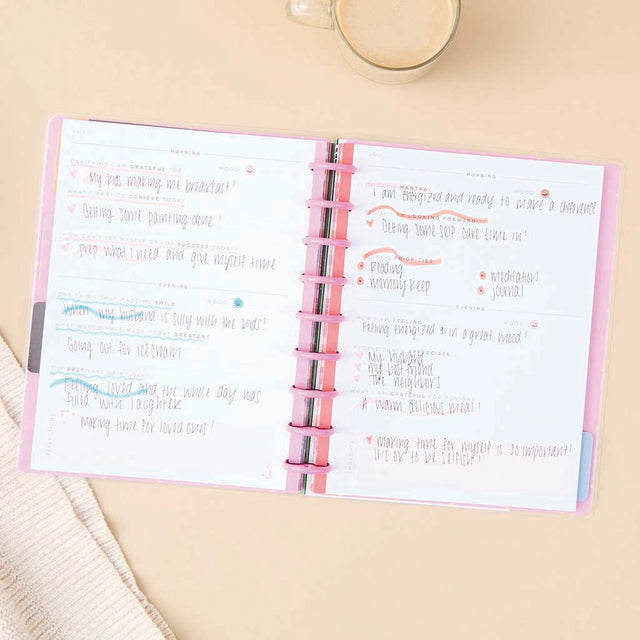 DATE
MORNING
ONE THING I AM GRATEFUL FOR
MOOD
My kids making me breakfast!
WHAT I WANT TO ACHIEVE TODAY
Getting some painting done!
HOW CAN I SET MYSELF UP FOR SUCCESS TODAY?
prep what I need and give myself time
EVENING
ONE THING THAT MADE ME SMILE
MOOD
When my husband is silly with the kids!
WHAT WOULD HAVE MADE TODAY GREATER?
Going out for icecream
THE BEST PART OF MY DAY
Feeling loved and the whole day was
filled with laughter
REFLECTIONS
Making time for loved ones!
DATE
MORNING
TODAY'S MANTRA:
MOOD
I am energized and ready to make a difference
LOOKING FORWARD
Getting some self care time in!
PRIORITIES
Reading
morning keep
meditation
journal
EVENING
HOW I AM FEELING
MOOD
Feeling energized & in a great mood!
PEOPLE I APPRECIATE
My husband
my best friend
The neighbors
WHAT I AM GRATEFUL FOR TONIGHT
A warm delicious meal!
Making time for myself is so important!
It's ok to be selfish!